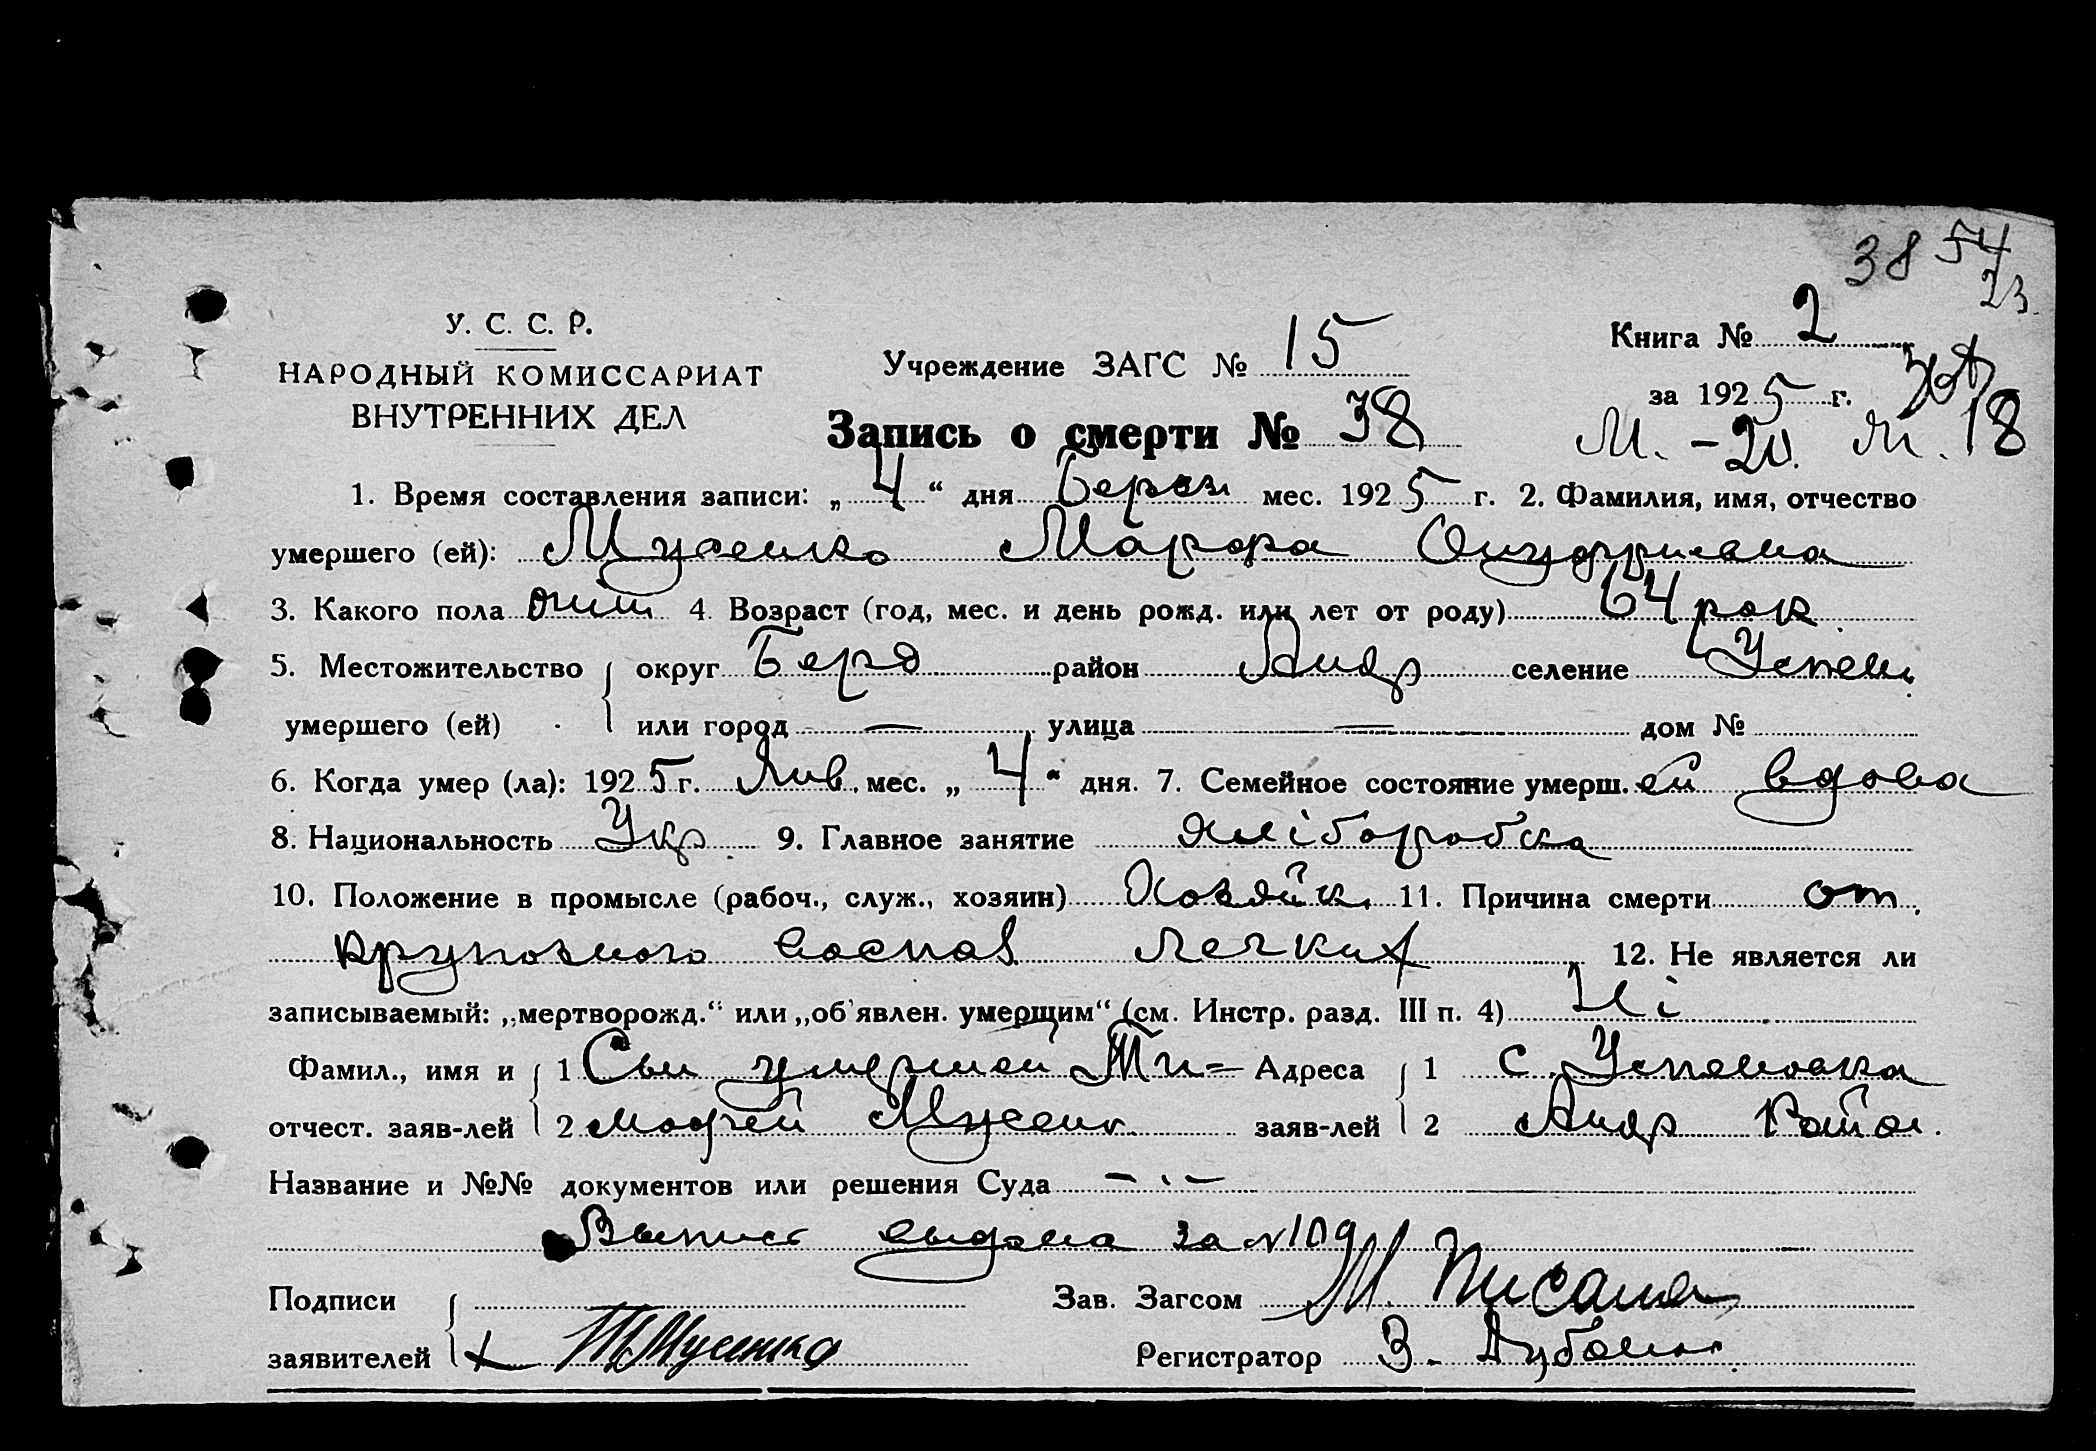 38 54
23
У. С. С. Р.
НАРОДНЫЙ КОМИССАРИАТ
ВНУТРЕННИХ ДЕЛ
Учреждение ЗАГС № 15
Книга № 2
за 1925 г.
Запись о смерти № 38
М. - 20. М. 18
1. Время составления записи: „ 4 “ дня Берез мес. 1925 г. 2. Фамилия, имя, отчество
умершего (ей): Мусенко Марфа
3. Какого пола 4. Возраст (год, мес. и день рожд. или лет от роду) 64 рок
5. Местожительство округ Берд район Андр селение Успен.
умершего (ей) или город — улица — дом №
6. Когда умер (ла): 1925 г. мес. „ 4 “ дня. 7. Семейное состояние умерш. ей вдова
8. Национальность Укр. 9. Главное занятие хліборобска
10. Положение в промысле (рабоч., служ., хозяин) Хозяйк. 11. Причина смерти от
крупозного воспал легких 12. Не является ли
записываемый: „мертворожд.“ или „об'явлен. умершим“ (см. Инстр. разд. III п. 4) Ні
Фамил., имя и 1 Сын умершей Ти= Адреса 1 с. Успеновка
отчест. заяв-лей 2 мофей Мусенк. заяв-лей 2 Андр Район.
Название и №№ документов или решения Суда - . -
Выпись выдана за № 109
Подписи Зав. Загсом М. Писаня
заявителей Т Мусенко Регистратор З.